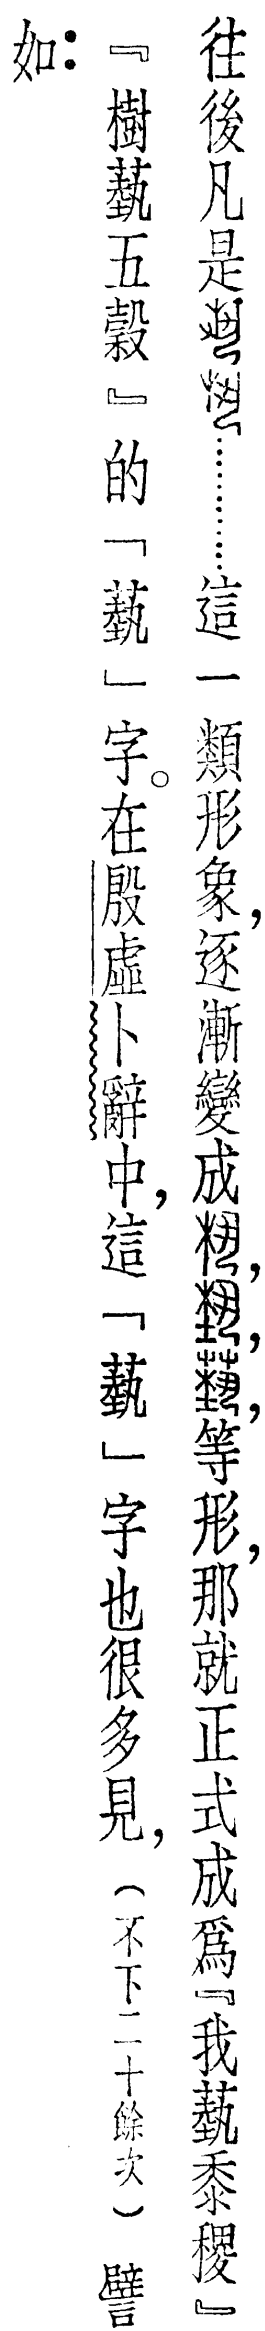 往後凡是…………這一類形象，逐漸變成，，，等形，那就正式成爲『我蓺黍稷』
『樹蓺五穀』的「蓺」字。在殷虛卜辭中，這「蓺」字也很多見，（不下二十餘次）譬
如：